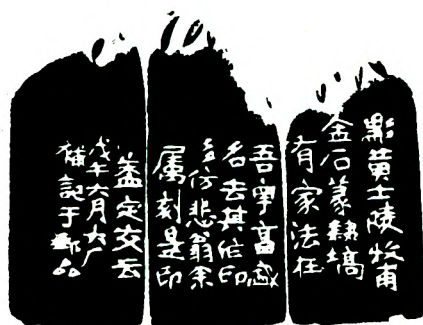 黟黃士陵牧甫
金石篆隸塙
有家法在
吾寧高
名去其作印
多仿悲翁余
属刻是印
盖定交云
戊午六月大厂
補記于